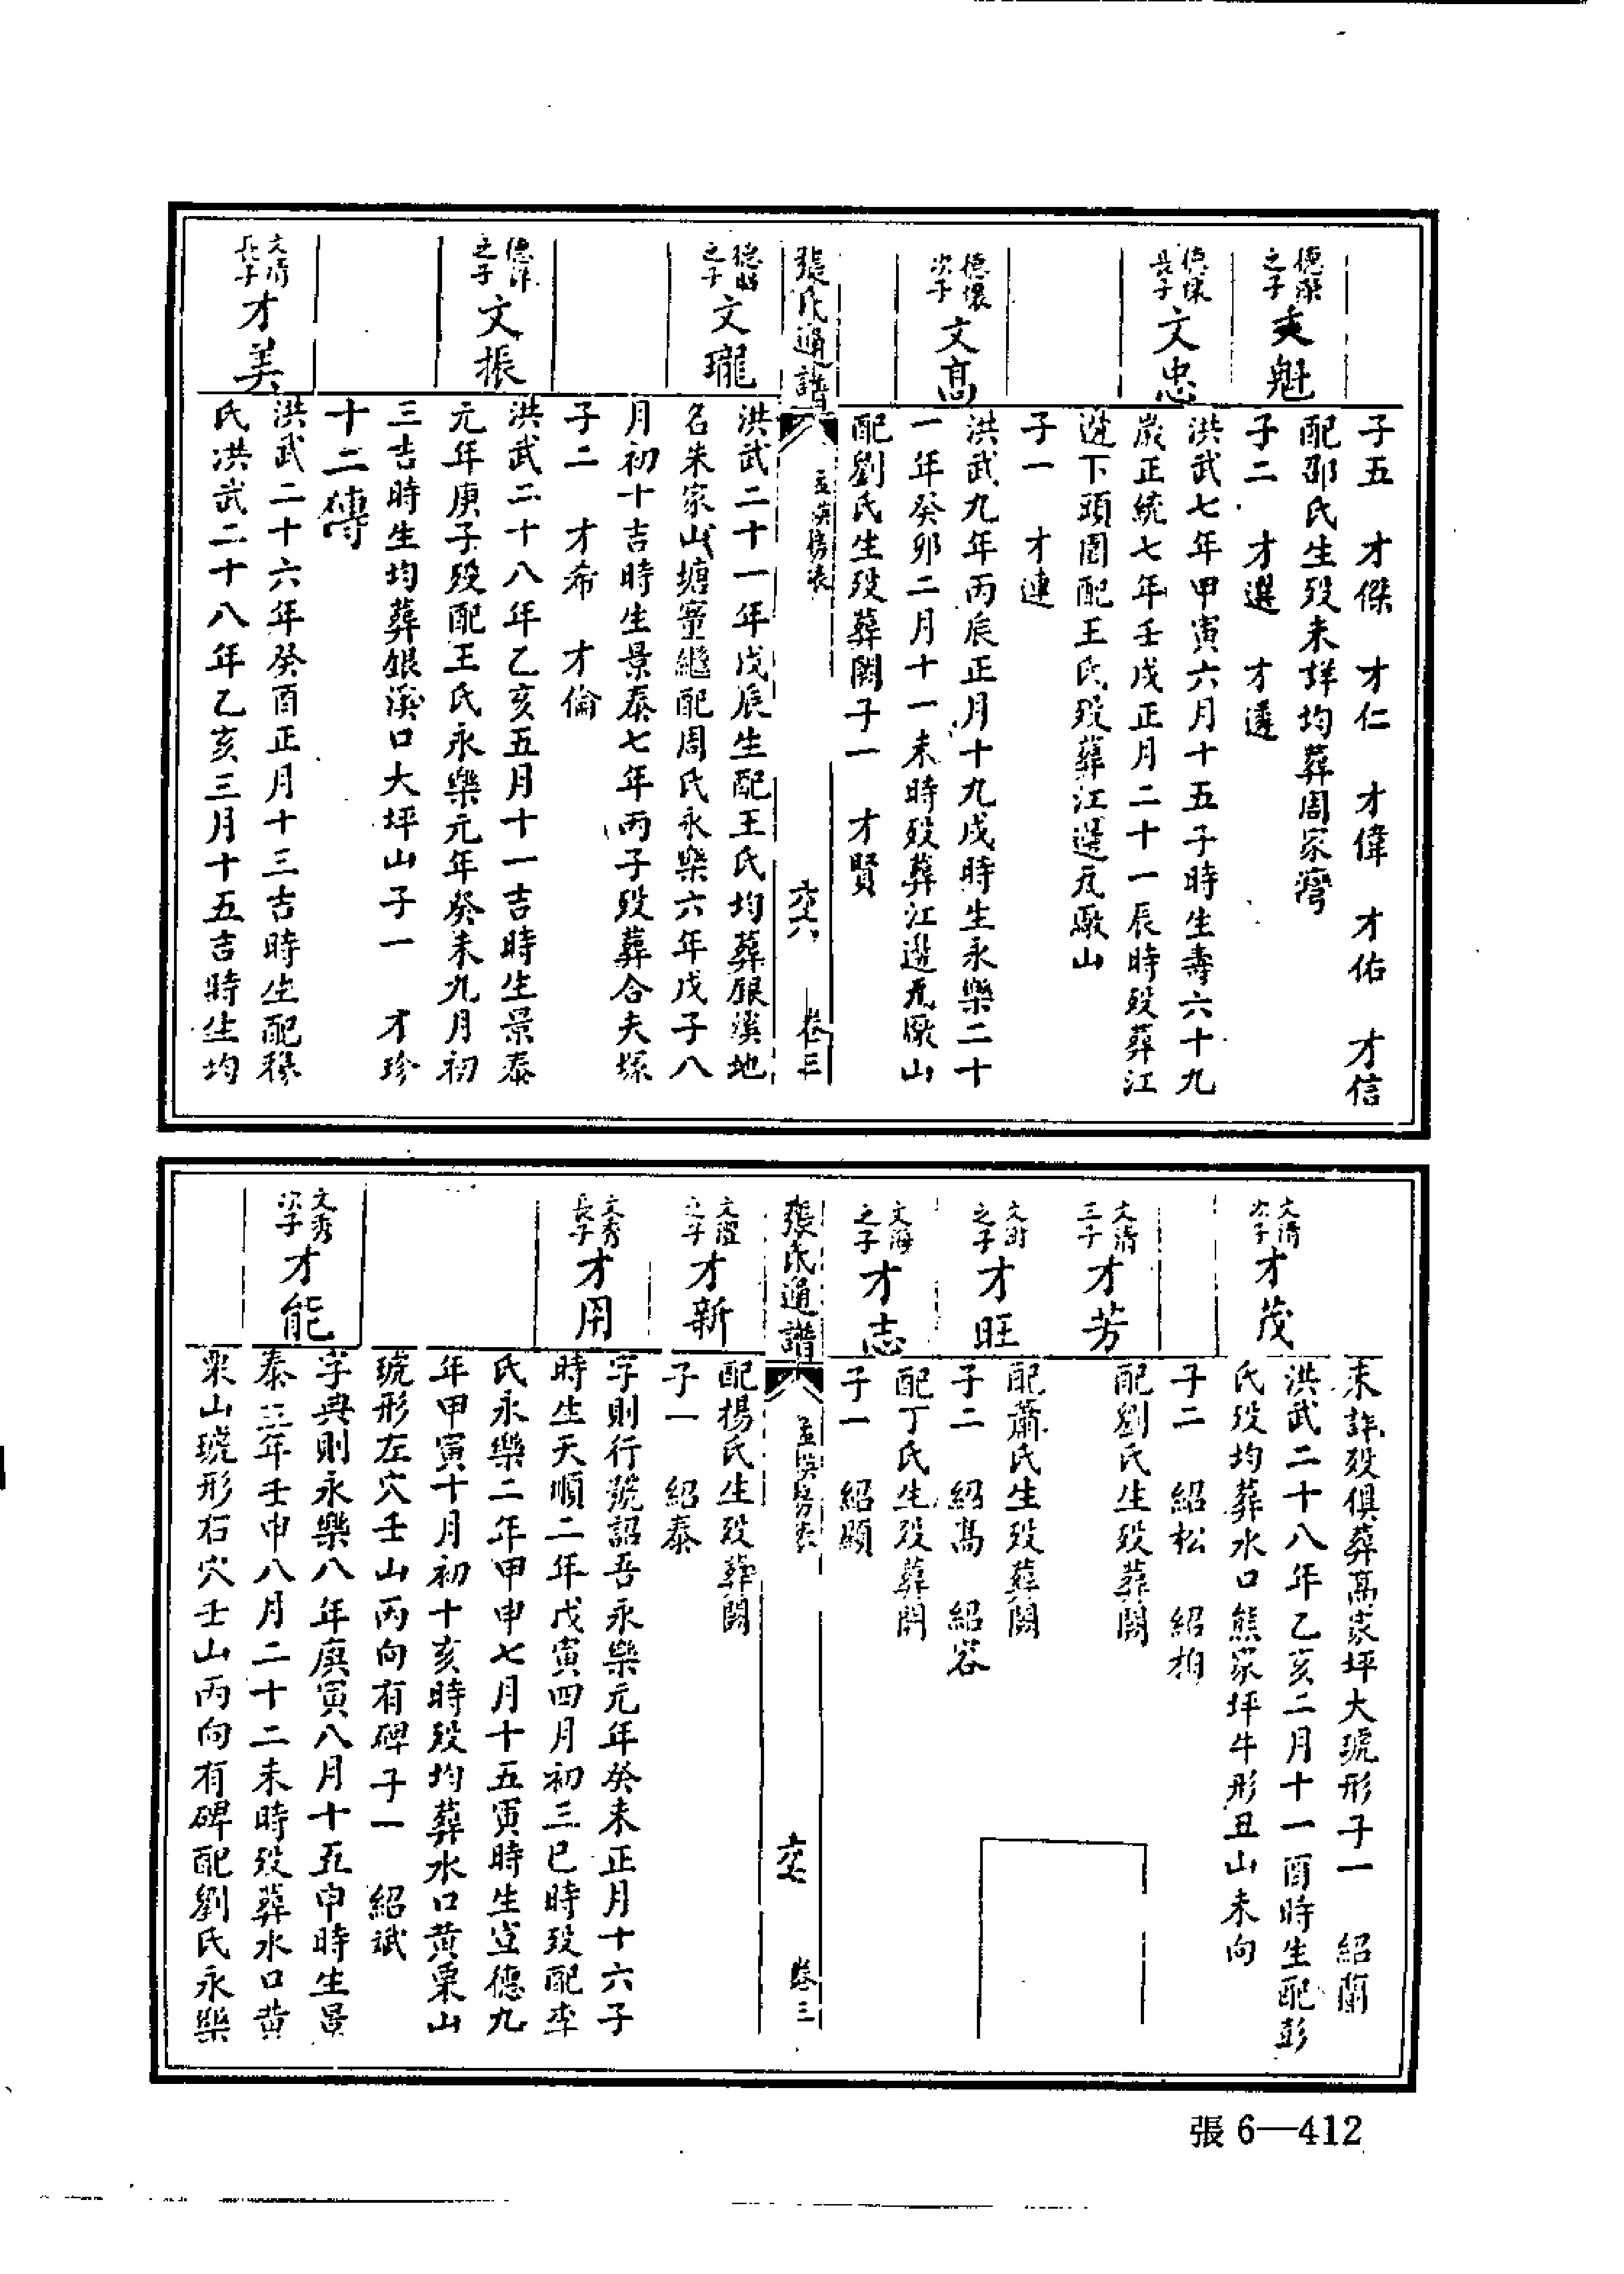 子五 才傑 才仁 才偉 才佑 才信
德榮之子 文魁
配邵氏生殁未詳均葬周家灣
子二 才選 才遷
德懷長子 文忠
洪武七年甲寅六月十五子時生壽六十九
歲正統七年壬戌正月二十一辰時殁葬江
邊下頭園配王氏殁葬江邊瓦廠山
子一 才連
德懷次子 文髙
洪武九年丙辰正月十九戌時生永樂二十
一年癸卯二月十一未時殁葬江邊瓦廠山
配劉氏生殁葬闕子一 才賢
張氏通譜
卷三
德昭之子 文瓏
洪武二十一年戊辰生配王氏均葬銀溪地
名朱家山塘壋繼配周氏永樂六年戊子八
月初十吉時生景泰七年丙子殁葬合夫塚
子二 才希 才倫
之子 文振
洪武二十八年乙亥五月十一吉時生景泰
元年庚子殁配王氏永樂元年癸未九月初
三吉時生均葬銀溪口大坪山子一 才珍
十二傳
文清長子 才美
洪武二十六年癸酉正月十三吉時生配穆
氏洪武二十八年乙亥三月十五吉時生均
未詳殁俱葬髙家坪大琥形子一 紹蘭
文清次子 才茂
洪武二十八年乙亥二月十一酉時生配彭
氏殁均葬水口熊家坪牛形丑山未向
子二 紹松 紹柏
文清三子 才芳
配劉氏生殁葬闕
之子 才旺
配蕭氏生殁葬闕
子二 紹髙 紹容
文海之子 才志
配丁氏生殁葬闕
子一 紹顯
張氏通譜
卷三
之子 才新
配楊氏生殁葬闕
子一 紹泰
文秀長子 才用
字則行號詔吾永樂元年癸未正月十六子
時生天順二年戊寅四月初三巳時殁配李
氏永樂二年甲申七月十五寅時生宣德九
年甲寅十月初十亥時殁均葬水口黄栗山
琥形左穴壬山丙向有碑子一 紹斌
文秀次子 才能
字典則永樂八年庚寅八月十五申時生景
泰三年壬申八月二十二未時殁葬水口黄
栗山琥形右穴壬山丙向有碑配劉氏永樂
張 6—412